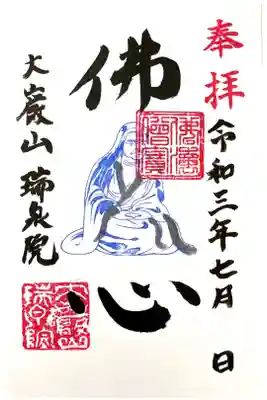 奉拝
令和三年七月 日
佛心
大巖山 瑞泉院